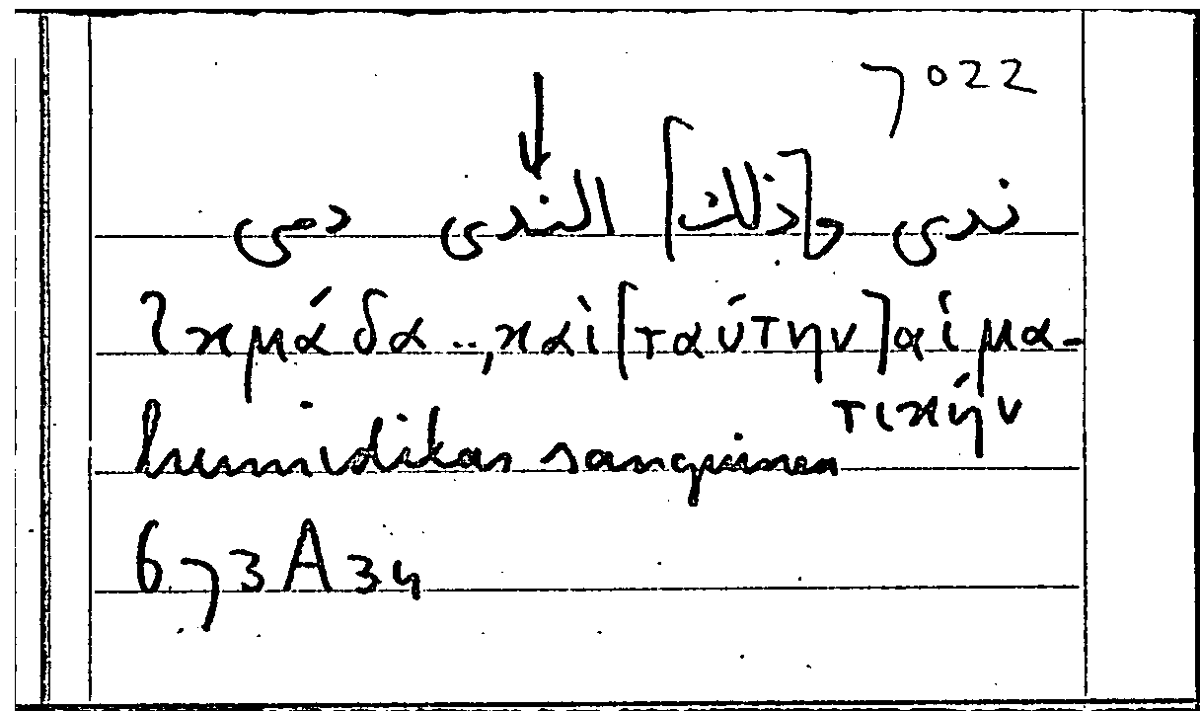 7022
ندى و[ذلك] الندى دمى
ἰκμάδα .., καὶ [ταύτην] αἱμα-
τικήν
humiditas sanguinea
673A34